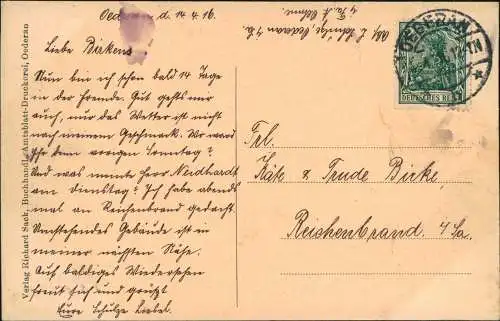 Oederan d. 14.4.16.
Liebe Birkens
Nun bin ich schon bald 14 Tage
in der Fremde. Gut gehts mir
auch, nur das Wetter ist nicht
nach meinem Geschmack. Wo ward
Ihr denn vorigen Sonntag?
Und was meinte Herr Neidhardt
am Dienstag? Ich habe abends
mal an Reichenbrand gedacht.
Umstehendes Gebäude ist in
meiner nächsten Nähe.
Auf baldiges Wiedersehen
freut sich und grüßt
Eure Schulze Liebel.
Verlag Richard Sack, Buchhandlg. Amtsblatt-Druckerei, Oederan
Oederan i. Sa.
OEDERAN
DEUTSCHES REICH
Frl.
Käte & Trude Birke,
Reichenbrand i/Sa.